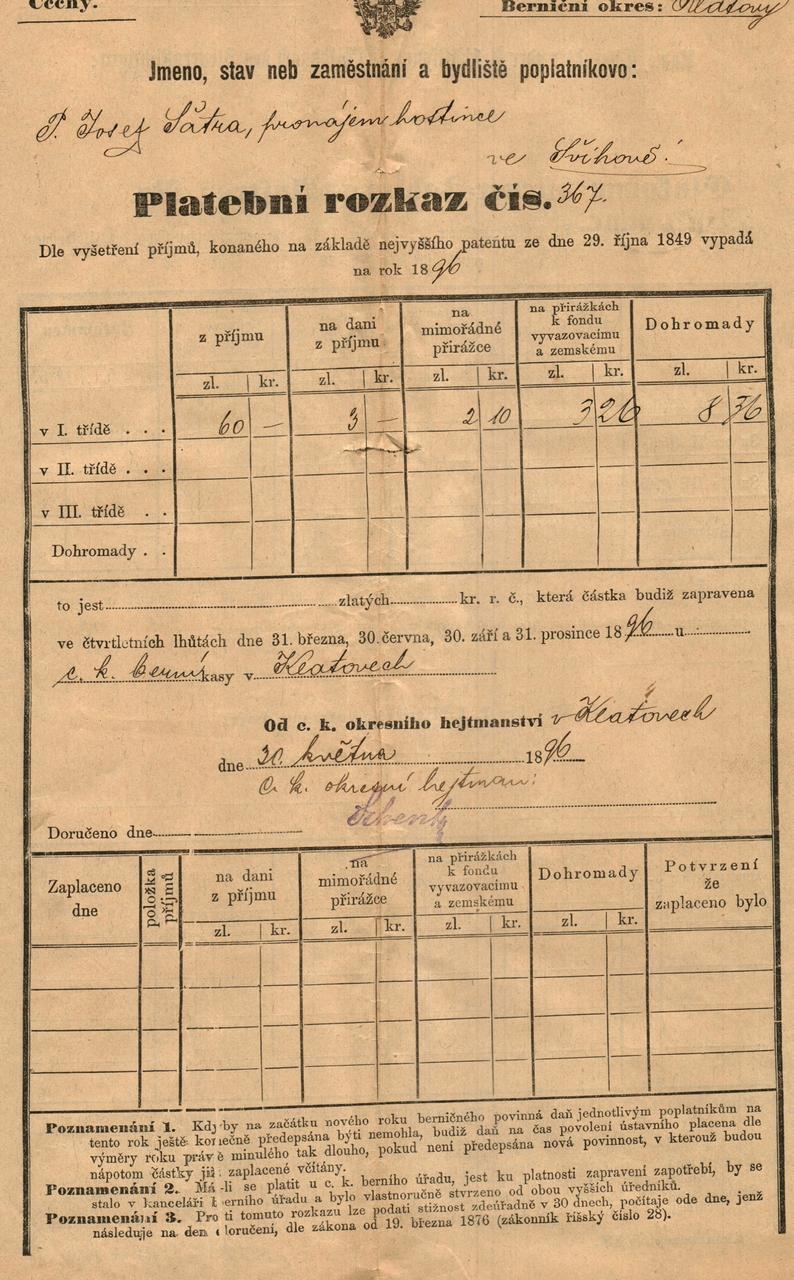 Čechy.
Berniční okres: Klatovy
Jmeno, stav neb zaměstnání a bydliště poplatníkovo:
P. Josef Šatra, pronájem hostince
ve Švihově!
Platební rozkaz čís. 367.
Dle vyšetření příjmů, konaného na základě nejvyššího patentu ze dne 29. října 1849 vypadá
na rok 1896
z příjmu
na dani
z příjmu
na
mimořádné
přirážce
na přirážkách
k fondu
vyvazovacímu
a zemskému
Dohromady
zl. kr. zl. kr. zl. kr. zl. kr. zl. kr.
v I. třídě . . . 60 — 3 — 2 10 3 26 8 36
v II. třídě . . .
v III. třídě . .
Dohromady . .
to jest zlatých kr. r. č., která částka budiž zapravena
ve čtvrtletních lhůtách dne 31. března, 30. června, 30. září a 31. prosince 1896 u
c. k. berní kasy v Klatovech
Od c. k. okresního hejtmanství v Klatovech
dne 30 května 1896
C. k. okresní hejtman:
Doručeno dne
Zaplaceno
dne
položka
příjmů
na dani
z příjmu
na
mimořádné
přirážce
na přirážkách
k fondu
vyvazovacímu
a zemskému
Dohromady
Potvrzení
že
zaplaceno bylo
zl. kr. zl. kr. zl. kr. zl. kr.
Poznamenání 1. Kdyby na začátku nového roku berničného povinná daň jednotlivým poplatníkům na
tento rok ještě konečně předepsána býti nemohla, budiž daň na čas povolení ústavního placena dle
výměry roku právě minulého tak dlouho, pokud není předepsána nová povinnost, v kterouž budou
nápotom částky již zaplacené včítány.
Poznamenání 2. Má-li se platit u c. k. berního úřadu, jest ku platnosti zapravení zapotřebí, by se
stalo v kanceláři berního úřadu a bylo vlastnoručně stvrzeno od obou vyšších úředníků.
Poznamenání 3. Proti tomuto rozkazu lze podati stížnost zdeúřadně v 30 dnech, počítaje ode dne, jenž
následuje na den doručení, dle zákona od 19. března 1876 (zákonník říšský číslo 28).